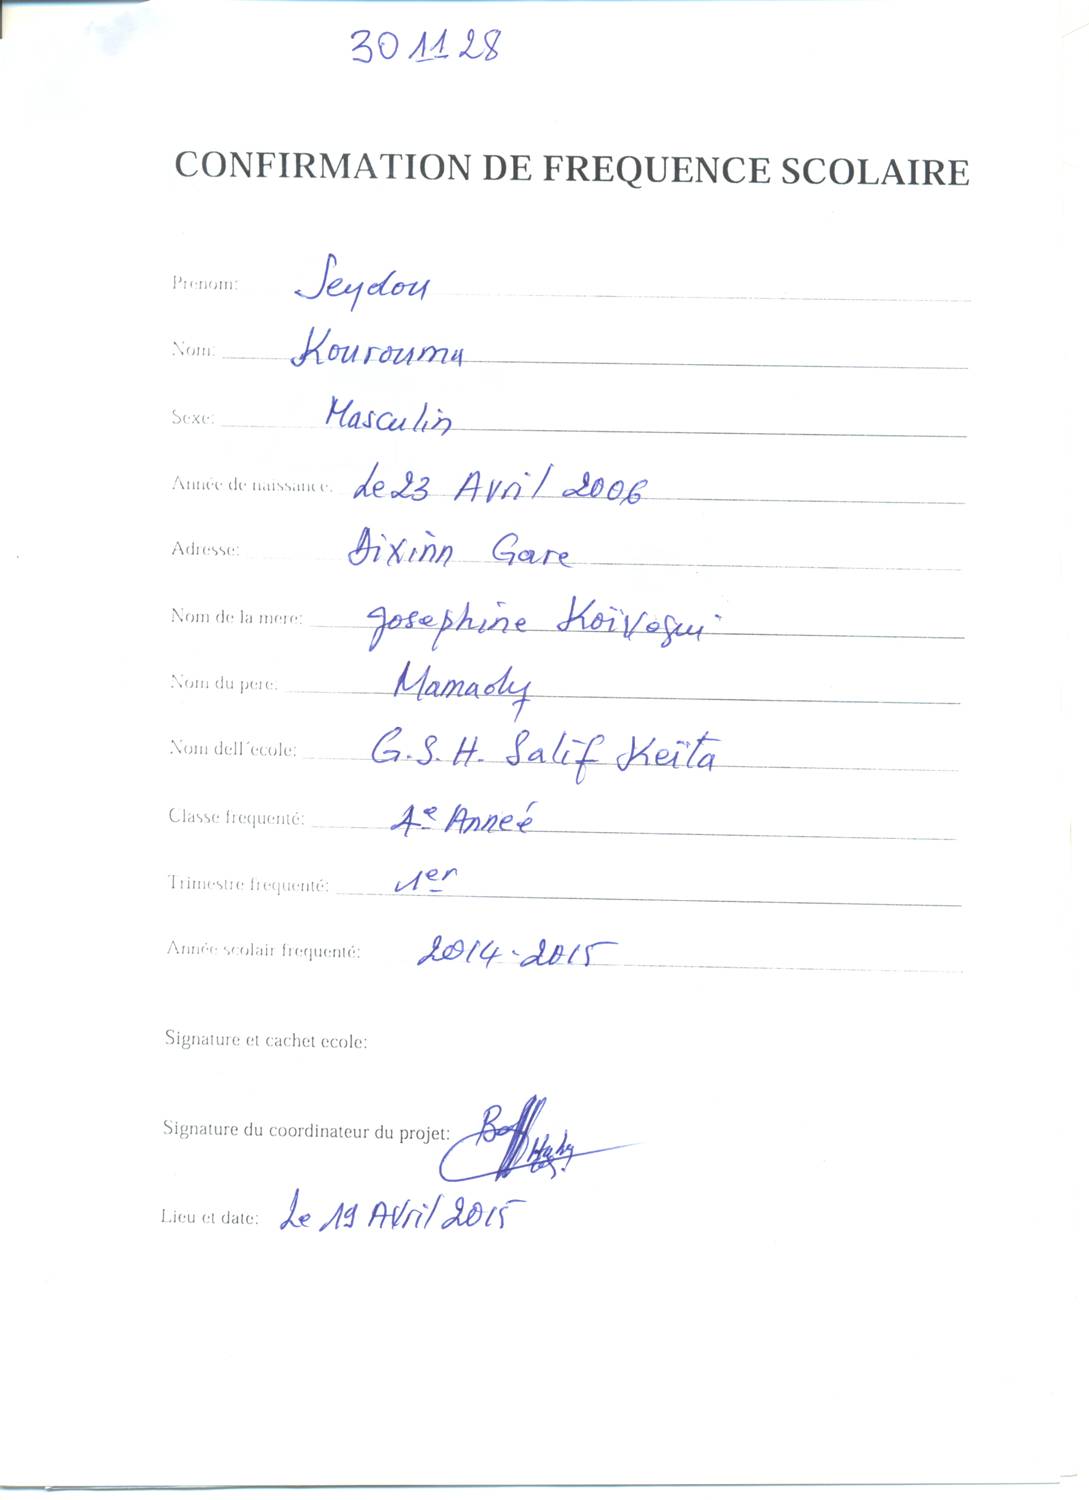 30 11 28
CONFIRMATION DE FREQUENCE SCOLAIRE
Prenom: Seydou
Nom: Kourouma
Sexe: Masculin
Année de naissance: Le 23 Avril 2006
Adresse: Dixinn Gare
Nom de la mere: Josephine Koïvogui
Nom du pere: Mamady
Nom dell'ecole: G.S.H. Salif Keïta
Classe frequenté: 4e Anneé
Trimestre frequenté: 1er
Année scolair frequenté: 2014-2015
Signature et cachet ecole:
Signature du coordinateur du projet:
Lieu et date: Le 19 Avril 2015